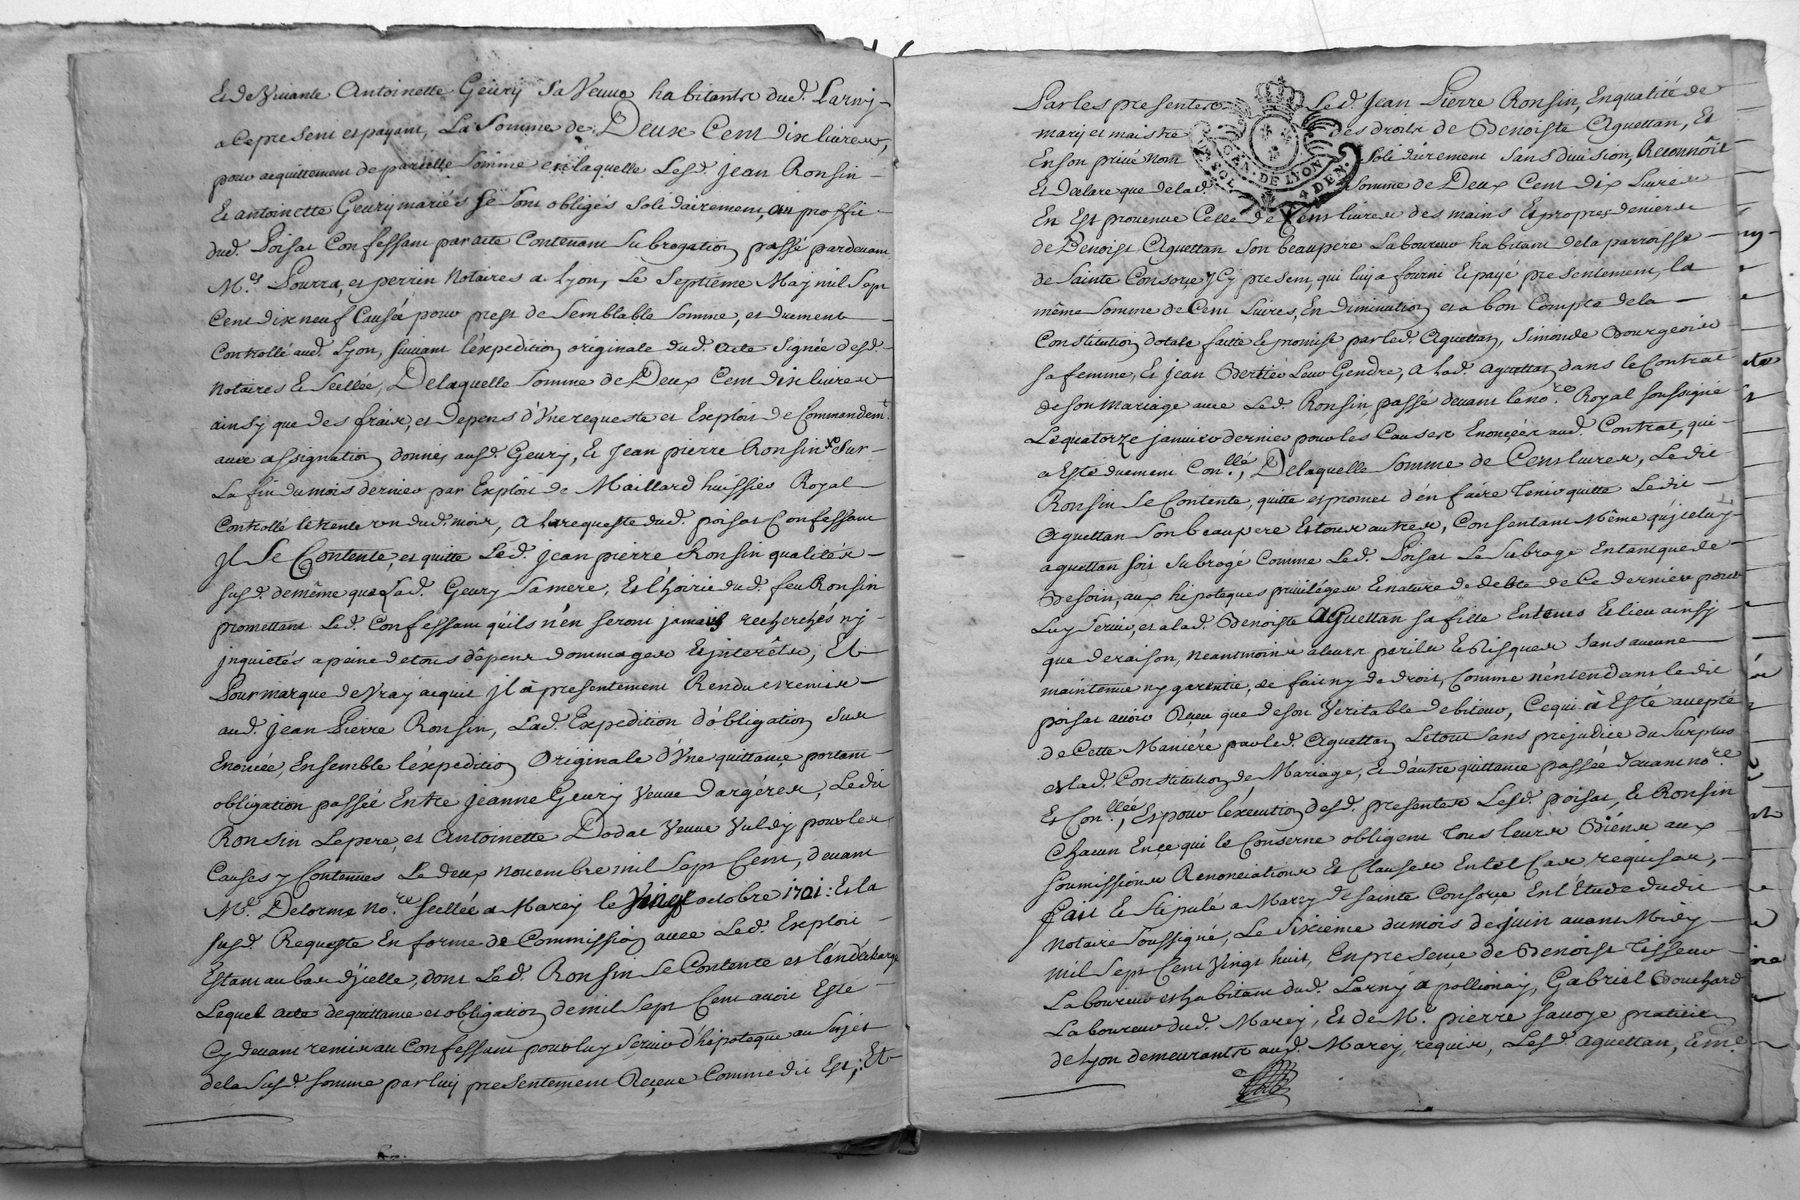 Et de Vivante Antoinette Geury Sa Veuve habitante dud. Larny
a ce present et payant, La Somme de Deux Cent dix livres,
pour acquittement de pareille Somme en laquelle Lesd. Jean Ronsin
Et antoinette Geury mariés se sont obligés solidairement, au proffit
dud. Poisat Confessant par acte Contenant Subrogation passé pardevant
M.es Pourra, et perrin Notaires a Lyon, Le Septième May mil Sept
Cent dix neuf Causée pour prest de Semblable Somme, et duement
Controllé aud. Lyon, suivant l'expedition originale dud. acte Signée desd.
Notaires & Scellée, De laquelle Somme de Deux Cent dix livres
ainsy que des fraix, et depens d'Une requeste et Exploit de Commandem.t
avec assignation donnés ausd. Geury, & Jean pierre Ronsin Sur
La fin du mois dernier par Exploit de Maillard huissier Royal
Controllé le trente un dud. mois, a la requeste dud. poisat Confessant
Jl Se Contente, et quitte Led. jean pierre Ronsin qualités
susd. de même que Lad. Geury Sa mere, Et l'hoirie dud. feu Ronsin
promettant Led. Confessant qu'ils n'en seront jamais recherchés ny
jnquietés a peine de tous dépens dommages & jnterêts, Et
Pour marque de Vray acquit jl a presentement Rendu et remis
aud. Jean Pierre Ronsin, Lad. Expedition d'obligation Sus
Enoncée, Ensemble l'expedition Originale d'Une quittance portant
obligation passée Entre Jeanne Geury Veuve Dargéres, Ledit
Ronsin Le pere, et Antoinette Dodat Veuve Valdy pour les
Causes y Contenues Le deux Novembre mil Sept Cent, devant
M.e Delorme No.re scellée a Marcy le Vingt octobre 1701: Et la
susd. Requeste En forme de Commission avec Led. Exploit
Estant au bas d'jcelle, dont Led. Ronsin Se Contente et l'en décharge
Lequel acte de quittance et obligation de mil Sept Cent avoit Esté
Cy devant remis au Confessant pour luy Servir d'hipoteque au Sujet
de la Susd. Somme par luy presentement Reçeue Comme dit Est; Et
Par les presentes Led. Jean Pierre Ronsin, En qualité de
mary et maistre des droits de Benoiste Aguettan, Et
En son privé nom solidairement sans division, Reconnoît
Et declare que de lad. Somme de Deux Cent dix Livres
En Est provenue Celle de Cent livres des mains & propres deniers
de Benoist Aguettan Son beaupere Laboureur habitant de la parroisse
de Sainte Consorce jCy present, qui luy a fourni & payé presentement, la
même Somme de Cent Livres, En diminution et a bon Compte de la
Constitution dotale faitte & promise par led. Aguettan, Simonde Bourgeois
sa femme, & jean Bertier Leur Gendre, a lad. aguettan dans le Contrat
de son mariage avec Led. Ronsin, passé devant le no.re Royal soussigné
Le quatorze janvier dernier pour les Causes Enoncées aud. Contrat, qui
a Esté duement Con.llé, De laquelle Somme de Cent livres, Ledit
Ronsin Se Contente, quitte et promet d'en faire tenir quitte Ledit
Aguettan Son beaupere Et tous autres, Consentant Même qu'jceluy
aguettan soit Subrogé Comme Led. Poisat Le Subroge En tant que de
Besoin, aux hipoteques privilèges & nature de debte de Ce dernier pour
Luy Servir, et a lad. Benoiste Aguettan sa fille En tems & lieu ainsy
que de raison, neantmoins a leurs perils & Risques Sans aucune
maintenue ny garentie, de fait ny de droit, Comme n'entendans ledit
poisat avoir Reçeu que de son Veritable debiteur, Ce qui a Esté accepté
de Cette Manière par led. Aguettan, Le tout sans prejudice du Surplus
et lad. Constitution de Mariage, & d'autre quittance passée devant no.re
Et Con.llée, Et pour l'execution desd. presentes Lesd. poisat, & Ronsin
Chacun En ce qui le Conserne obligent tous leurs Biéns aux
soumissions Renonciations & Clauses En tel Cas requises,
Fait & Stipulé a Marcy de Sainte Consorce En l'Etude dudit
Notaire soussigné, Le Sixième du mois de juin avant Midy
mil Sept Cent Vingt huit, En presence de Benoist Tisseur
Laboureur et habitant dud. Larny a pollionay, Gabriel Bouchard
Laboureur dud. Marcy, Et de M.e pierre Savoye praticien
de Lyon demeurants aud. Marcy, requis, Lesd. aguettan, & m.e
GEN. DE LYON
4 DEN.